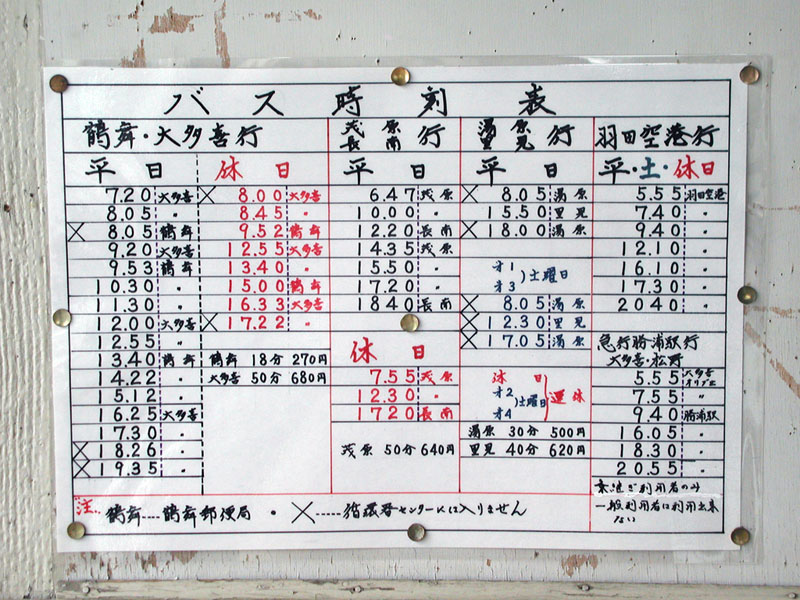 バス時刻表
鶴舞・大多喜行
平日 休日
7.20 大多喜 × 8.00 大多喜
8.05 〃 8.45 〃
× 8.05 鶴舞 9.52 鶴舞
9.20 大多喜 12.55 大多喜
9.53 鶴舞 13.40 〃
10.30 〃 15.00 鶴舞
11.30 〃 16.33 大多喜
12.00 大多喜 × 17.22 〃
12.55 〃
13.40 鶴舞 鶴舞 18分 270円
14.22 〃 大多喜 50分 680円
15.12 〃
16.25 大多喜
17.30 〃
× 18.26 〃
× 19.35 〃
茂原 長南 行
平日
6.47 茂原
10.00 〃
12.20 長南
14.35 茂原
15.50 〃
17.20 〃
1840 長南
休日
7.55 茂原
12.30 〃
1720 長南
茂原 50分 640円
湯原 里見 行
平日
× 8.05 湯原
15.50 里見
× 18.00 湯原
オ1 オ3 )土曜日
× 8.05 湯原
× 12.30 里見
× 17.05 湯原
休日
オ2 オ4 )土曜日 運休
湯原 30分 500円
里見 40分 620円
羽田空港行
平・土・休日
5.55 羽田空港
7.40 〃
9.40 〃
12.10 〃
16.10 〃
17.30 〃
2040 〃
急行勝浦駅行
大多喜・松野
5.55 大多喜 オリブエ
7.55 〃
9.40 勝浦駅
16.05 〃
18.30 〃
20.55 〃
利用者のみ
一般利用者は利用出来
ない
注.. 鶴舞....鶴舞郵便局 ・ ×.....循環器センターには入りません